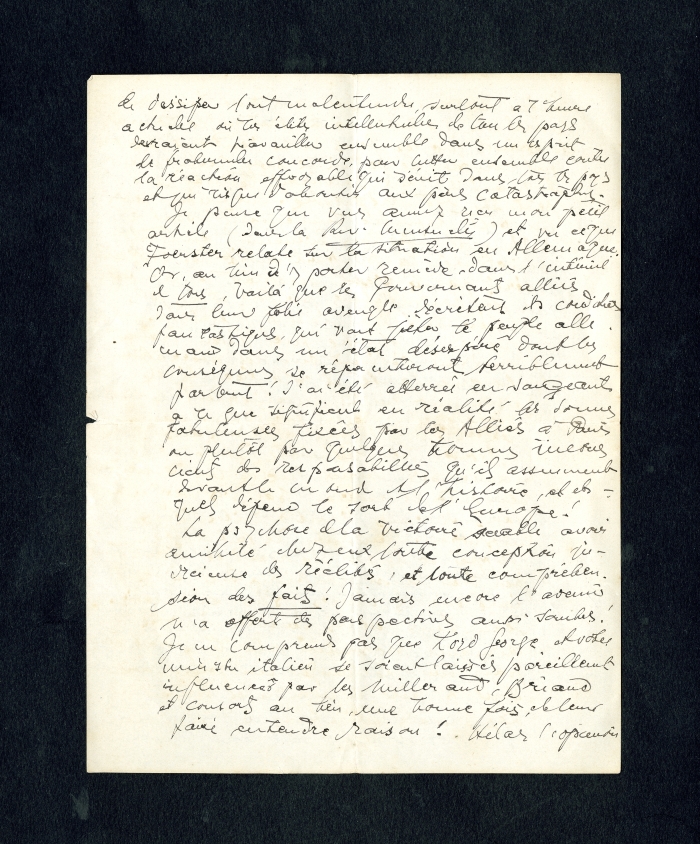 de dissiper tout malentendu, surtout à l'heure
actuelle où les élites intellectuelles de tous les pays
devraient travailler ensemble dans un esprit
de fraternelle concorde, pour lutter ensemble contre
la réaction effroyable qui sévit dans tous les pays
et qui risque d'aboutir aux pires catastrophes.
Je pense que vous aurez reçu mon petit
article (dans la Rev. ) et vu ce que
Foerster relate sur la situation en Allemagne.
Or, au lieu d'y porter remède dans l'intérêt
de tous, voilà que les Gouvernants alliés
dans leur folie aveugle décrètent des conditions
fantastiques, qui vont jeter le peuple alle-
mand dans un état désespéré dont les
conséquences se répercuteront terriblement
partout! J'ai été atterré en songeant
à ce que signifient en réalité les sommes
fabuleuses fixées par les Alliés à Paris
ou plutôt par quelques hommes incons-
cients des responsabilités qu'ils assument
devant le monde et l'histoire, et des-
quels dépend le sort de l'Europe!
La psychose de la victoire semble avoir
annihilé chez eux toute conception ju-
dicieuse des réalités, et toute compréhen-
sion des faits! Jamais encore l'avenir
n'a offert des perspectives aussi sombres!
Je ne comprends pas que Lord George et votre
ministre italien se soient laissés pareillement
influencer par les Millerand, Briand
et consorts au lieu, une bonne fois, de leur
faire entendre raison! Hélas! l'opinion